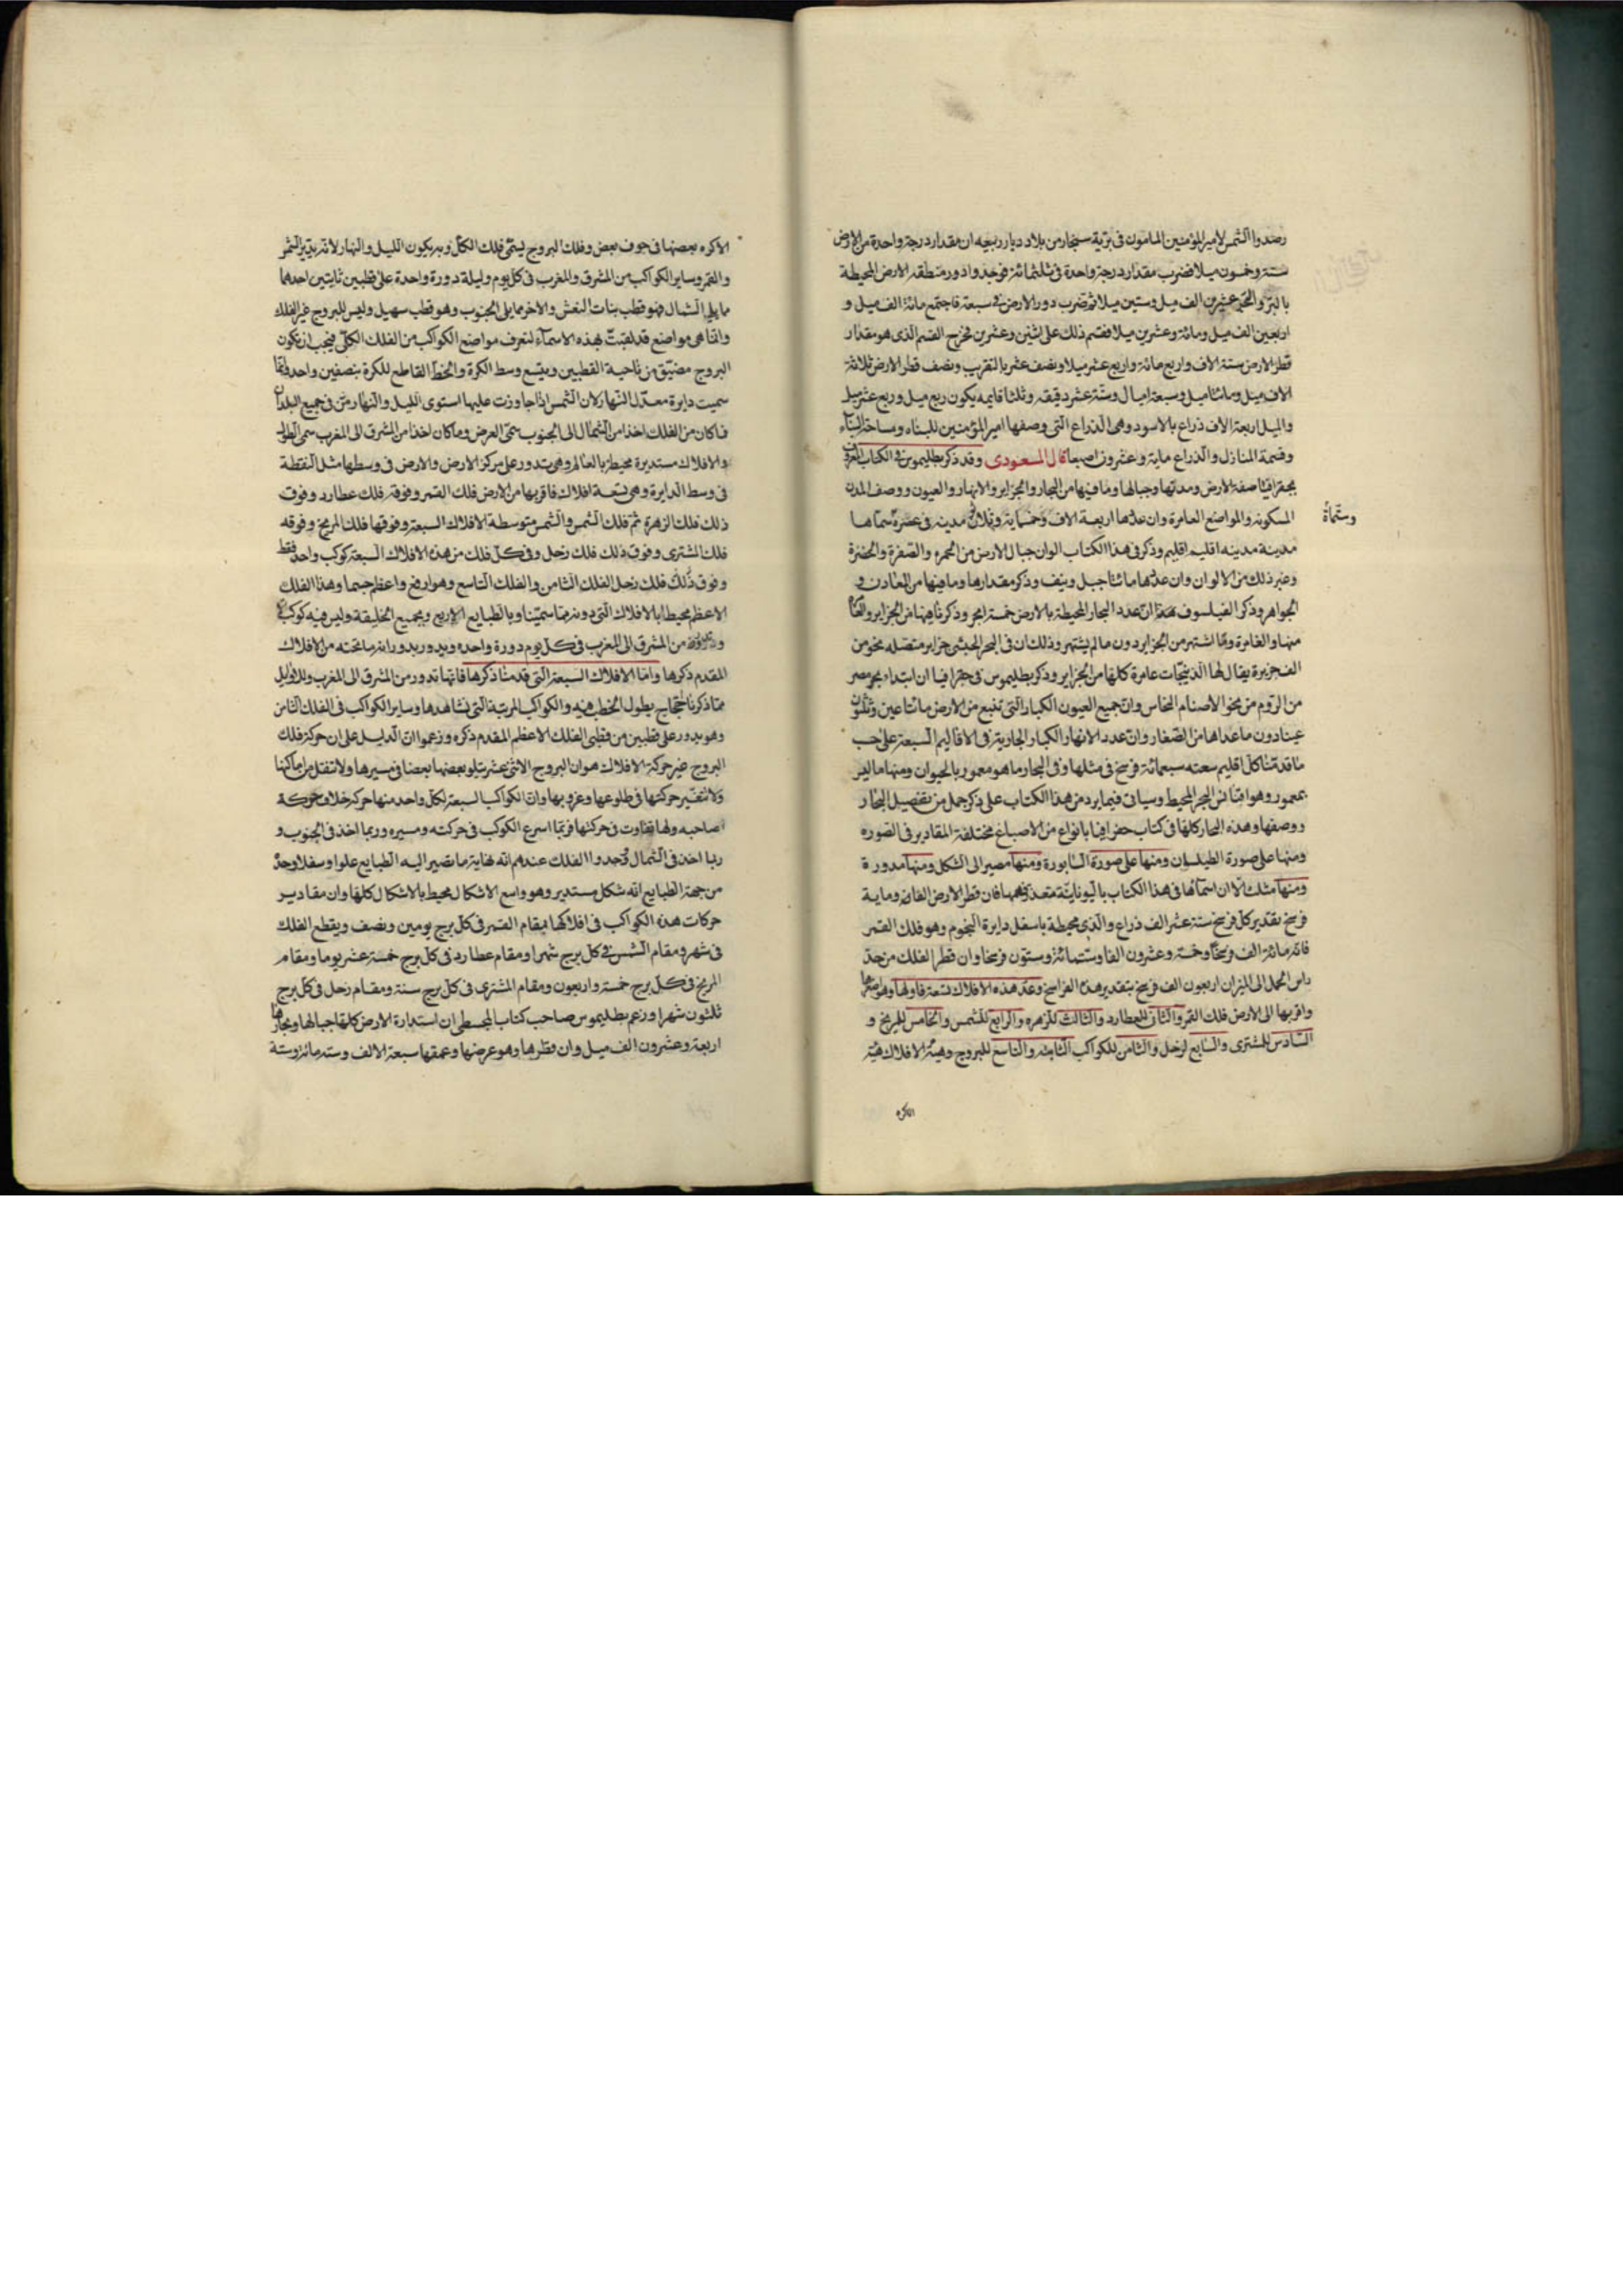 رصدوا الشمس لامير المؤمنين المامون فى برّية سنجار من بلاد ديار ربيعه ان مقدار درجة واحدة من الارض
ستة وخمسون ميلا فضرب مقدار درجة واحدة فى ثلثمائة فوجدوا دور منطقه الارض المحيطة
بالبرّ والبحر عشرين الف ميل وستين ميلا ثم ضرب دور الارض فى سبعة فاجتمع مائة الف ميل و
اربعين الف ميل ومائة وعشرين ميلا فقسم ذلك على اثنين وعشرين فخرج القسم الذى هو مقدار
قطر الارض ستة الاف واربع مائة واربع عشر ميلا ونصف عشر بالتقريب ونصف قطر الارض ثلاثة
الاف ميل ومائتا ميل وسبعة اميال وستّة عشر دقيقه وثلثا يكون ربع ميل وربع عشر ميل
والميل اربعة الاف ذراع بالاسود وهى الذراع التى وصفها امير المؤمنين للبناء ومساحة البناء
وقسمة المنازل والذراع ماية وعشرون اصبعا قال المسعودى وقد ذكر بطليموس فى الكتاب المعروف
بجغرافيا صفة الارض ومدنها وجبالها وما فيها من البحار والجزاير والانهار والعيون ووصف المدن
المسكونه والمواضع العامرة وان عددها اربعة الاف وخمسماية وثلاثون مدينه فى عصره سماها
وستّماة
مدينة مدينه اقليم اقليم وذكر فى هذا الكتاب الوان جبال الارض من الحمره والصفرة والخضرة
وغير ذلك من الالوان وان عددها مائتا جبل ونيف وذكر مقدارها وما فيها من المعادن و
الجواهر وذكر الفيلسوف هذا انّ عدد البحار المحيطة بالارض خمسة ابحر وذكر ما فيها من الجزاير والعامر
منها والغامرة وما اشتهر من الجزاير دون ما لم يشتهر وذلك ان فى البحر الحبشى جزاير متصله نحو من
الف جزيرة يقال لها الذبيجات عامرة كلها من الجزاير وذكر بطليموس فى جغرافيا ان ابتداء بحر مصر
من الروم من نحو الاصنام النحاس وانّ جميع العيون الكبار التى تنبع من الارض مائتا عين وثلثون
عينا دون ما عداها من الصّغار وانّ عدد الانهار الكبار الجارية فى الاقاليم السبعة على حسب
ما قدمنا كل اقليم سعته سبعمائة فرسخ فى مثلها وفى البحار ما هو معمور بالحيوان ومنها ما ليس
بمعمور وهو اقيانس البحر المحيط وسياتى فيما يرد من هذا الكتاب على ذكر جمل من تفصيل البحار
ووصفها وهذه البحار كلها فى كتاب جغرافيا بانواع من الاصباغ مختلفة المقادير فى الصوره
ومنها على صورة الطيلسان ومنها على صورة السابورة ومنها مصير الى الشكل ومنها مدورة
ومنها مثلث الّا ان اسمائها فى هذا الكتاب باليونانية متعذر فهمها فان قطر الارض الفان وماية
فرسخ بتقدير كل فرسخ ستة عشر الف ذراع والذى محيطة باسفل دايرة النجوم وهو فلك القمر
فانه مائة الف فرسخا وخمسة وعشرون الفا وستّمائة وستون فرسخا وان قطر الفلك من حد
راس الحمل الى الميزان اربعون الف فرسخ بتقدير هذه الفراسخ وعدد هذه الافلاك تسعة فاولها وهو اصغرها
واقربها الى الارض فلك القمر والثانى للعطارد والثالث للزهره والرابع للشمس والخامس للمريخ و
السّادس للمشترى والسابع لزحل والثامن للكواكب الثابته والتاسع للبروج وهيئة الافلاك هيئة
الاكره
الاكره بعضها فى جوف بعض وفلك البروج يسمّى فلك الكلّ وبه يكون الليل والنهار لانه يدير الشمس
والقمر وساير الكواكب من المشرق والمغرب فى كل يوم وليلة دورة واحدة على قطبين ثابتين احدهما
مما يلى الشمال فهو قطب بنات النعش والاخر مما يلى الجنوب وهو قطب سهيل وليس للبروج غير الفلك
وانما هى مواضع قد لقبت بهذه الاسماء لتعرف مواضع الكواكب من الفلك الكلّى فيجب ان تكون
البروج مضيّق من ناحية القطبين ويتسع وسط الكرة والخط القاطع للكرة بنصفين واحد
سميت دايرة معدّل النهار لان الشمس اذا جاوزت عليها استوى الليل والنهار فى جميع البلدان
فما كان من الفلك اخذا من الشمال الى الجنوب سمّى العرض وما كان اخذا من المشرق الى المغرب سمى الطول
والافلاك مستديرة محيطة بالعالم وهى تدور على مركز الارض والارض فى وسطها مثل النقطة
فى وسط الدايرة وهى تسعة افلاك فاقربها من الارض فلك القمر وفوقه فلك عطارد وفوق
ذلك فلك الزهرة ثم فلك الشمس والشمس متوسطة الافلاك السبعة وفوقها فلك المريخ وفوقه
فلك المشترى وفوق ذلك فلك زحل وفى كلّ فلك من هذه الافلاك السبعة كوكب واحد فقط
وفوق ذلك فلك زحل الفلك الثامن والفلك التاسع وهو ارفع واعظم جسما وهذا الفلك
الاعظم محيط بالافلاك التى دونه مما سمّينا وبالطبايع الاربع وبجميع الخليقة وليس فيه كوكب
ودورته من المشرق الى المغرب فى كل يوم دورة واحده ويدور بدورانه ما تحته من الافلاك
المقدم ذكرها واما الافلاك السبعة التى قدمنا ذكرها فانها تدور من المشرق الى المغرب وللاوايل
مما ذكرنا حجاج يطول الخطب فيه والكواكب المرتبة التى نشاهدها وساير الكواكب فى الفلك الثامن
وهو يدور على قطبين من قطبى الفلك الاعظم المقدم ذكره وزعموا انّ الدليل على ان حركة فلك
البروج غير حركة الافلاك هو ان البروج الاثنى عشر يتلو بعضها بعضا فى مسيرها ولا تنتقل من اماكنها
ولا تتغير حركتها فى طلوعها وغروبها وان الكواكب السبعة لكل واحد منها حركة خلاف حركة
صاحبه ولها تفاوت فى حركتها فربما اسرع الكوكب فى حركته ومسيره وربما اخذ فى الجنوب و
ربا اخذ فى الشمال وحدوا الفلك عندهم انه نهاية ما تصير اليه الطبايع علوا وسفلا وحدّ
من جهة الطبايع انه شكل مستدير وهو واسع الاشكال محيط بالاشكال كلها وان مقادير
حركات هذه الكواكب فى افلاكها فمقام القمر فى كلّ برج يومين ونصف ويقطع الفلك
فى شهر ومقام الشمس فى كل برج شهرا ومقام عطارد فى كل برج خمسة عشر يوما ومقام
المريخ فى كلّ برج خمسة واربعون ومقام المشترى فى كل برج سنة ومقام زحل فى كلّ برج
ثلثون شهرا وزعم بطليموس صاحب كتاب المجسطى ان استدارة الارض كلها جبالها وبحارها
اربعة وعشرون الف ميل وان قطرها وهو عرضها وعمقها سبعة الالف وستمائة وستة